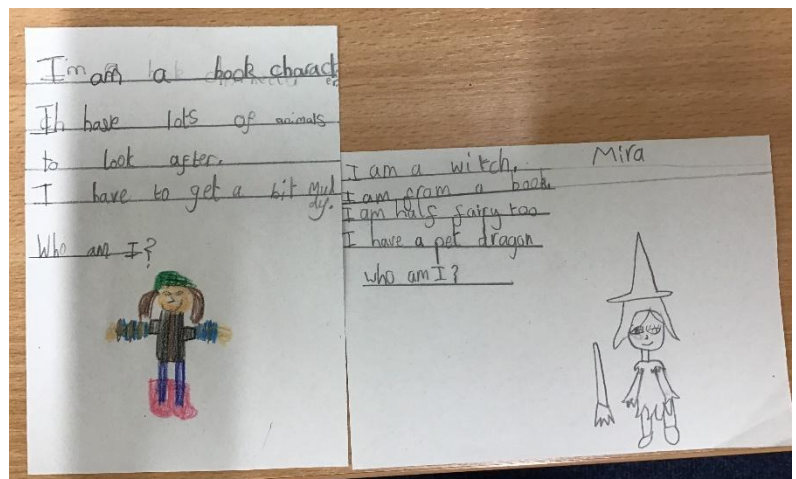 I'm am a book charact
er.
I h have lots of animals
to look after.
I have to get a bit mud
dy.
Who am I?
Mira
I am a witch.
I am from a book.
I am half fairy too
I have a pet dragon
who am I?